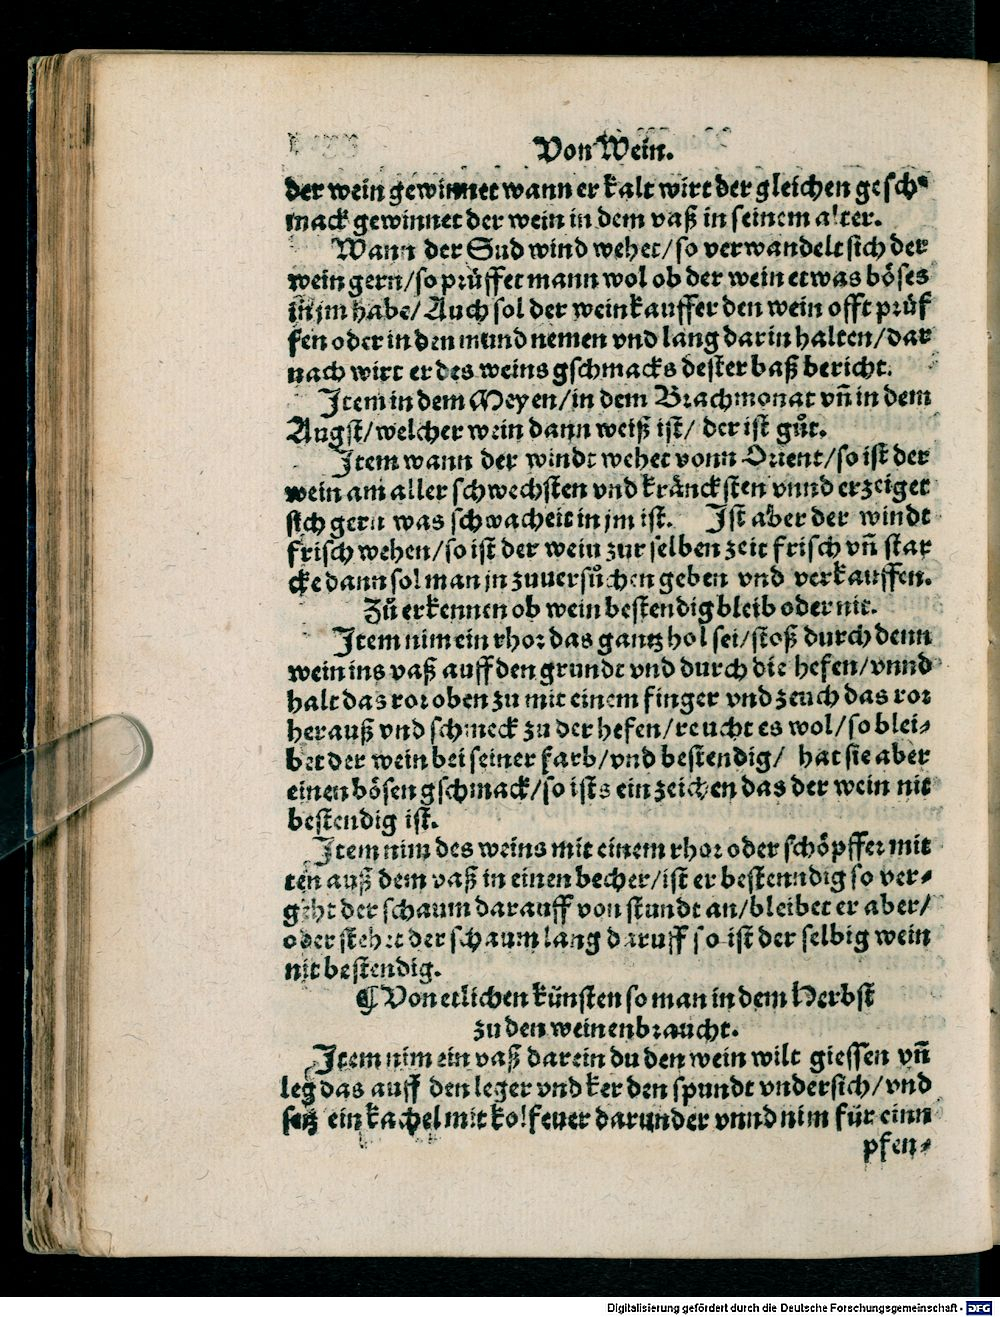 Von Wein.
der wein gewinnet wann er kalt wirt der gleichen gesch⸗
mack gewinnet der wein in dem vaß in seinem alter.
Wann der Sud wind wehet/so verwandelt sich der
wein gern/so prüffet mann wol ob der wein etwas böses
in jm habe/Auch sol der weinkauffer den wein offt prüf
fen oder in den mund nemen vnd lang darin halten/dar
nach wirt er des weins gschmacks dester baß bericht.
Item in dem Meyen/in dem Brachmonat vñ in dem
Augst/welcher wein dann weiß ist/ der ist gůt.
Item wann der windt wehet vonn Orient/so ist der
wein am aller schwechsten vnd kräncksten vnnd erzeiget
sich gern was schwacheit in jm ist. Ist aber der windt
frisch wehen/so ist der wein zur selben zeit frisch vñ star
cke dann sol man jn zuuersůchen geben vnd verkauffen.
Zů erkennen ob wein bestendig bleib oder nit.
Item nim ein rhor das gantz hol sei/stoß durch denn
wein ins vaß auff den grundt vnd durch die hefen/vnnd
halt das ror oben zu mit einem finger vnd zeuch das ror
herauß vnd schmeck zu der hefen/reucht es wol/so blei⸗
bet der wein bei seiner farb/vnd bestendig/ hat sie aber
einen bösen gschmack/so ists ein zeichen das der wein nit
bestendig ist.
Item nim des weins mit einem rhor oder schöpffer mit
ten auß dem vaß in einen becher/ist er bestenndig so ver⸗
geht der schaum darauff von stundt an/bleibet er aber/
oder stehet der schaum lang daruff so ist der selbig wein
nit bestendig.
¶ Von etlichen künsten so man in dem Herbst
zu den weinen braucht.
Item nim ein vaß darein du den wein wilt giessen vñ
leg das auff den leger vnd ker den spundt vndersich/vnd
setz ein kachel mit kolfeuer darunder vnnd nim für einn
pfen⸗
Digitalisierung gefördert durch die Deutsche Forschungsgemeinschaft - DFG